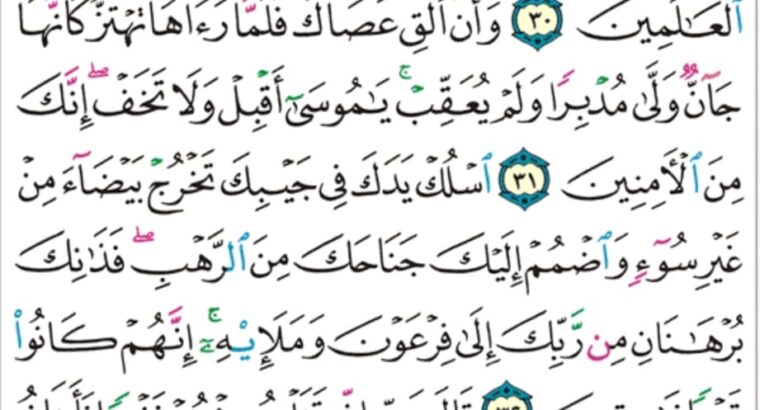 ٱلْعَـٰلَمِينَ ٣٠ وَأَنْ أَلْقِ عَصَاكَ فَلَمَّا رَءَاهَا تَهْتَزُّ كَأَنَّهَا
جَآنٌّ وَلَّىٰ مُدْبِرًا وَلَمْ يُعَقِّبْ ۚ يَـٰمُوسَىٰٓ أَقْبِلْ وَلَا تَخَفْ ۖ إِنَّكَ
مِنَ ٱلْأَمِنِينَ ٣١ ٱسْلُكْ يَدَكَ فِى جَيْبِكَ تَخْرُجْ بَيْضَآءَ مِنْ
غَيْرِ سُوٓءٍ وَٱضْمُمْ إِلَيْكَ جَنَاحَكَ مِنَ ٱلرَّهْبِ ۖ فَذَٰنِكَ
بُرْهَـٰنَانِ مِن رَّبِّكَ إِلَىٰ فِرْعَوْنَ وَمَلَإِي۟هِۦٓ ۚ إِنَّهُمْ كَانُوا۟